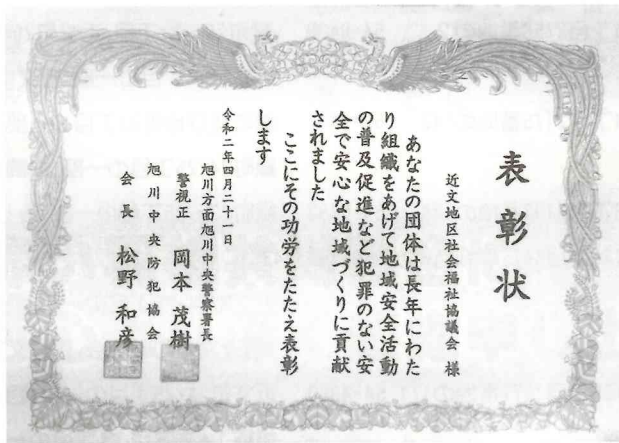 表彰状
近文地区社会福祉協議会 様
あなたの団体は長年にわた
り組織をあげて地域安全活動
の普及促進など犯罪のない安
全で安心な地域づくりに貢献
されました
ここにその功労をたたえ表彰
します
令和二年四月二十一日
旭川方面旭川中央警察署長
警視正 岡本茂樹
旭川中央防犯協会
会長 松野和彦